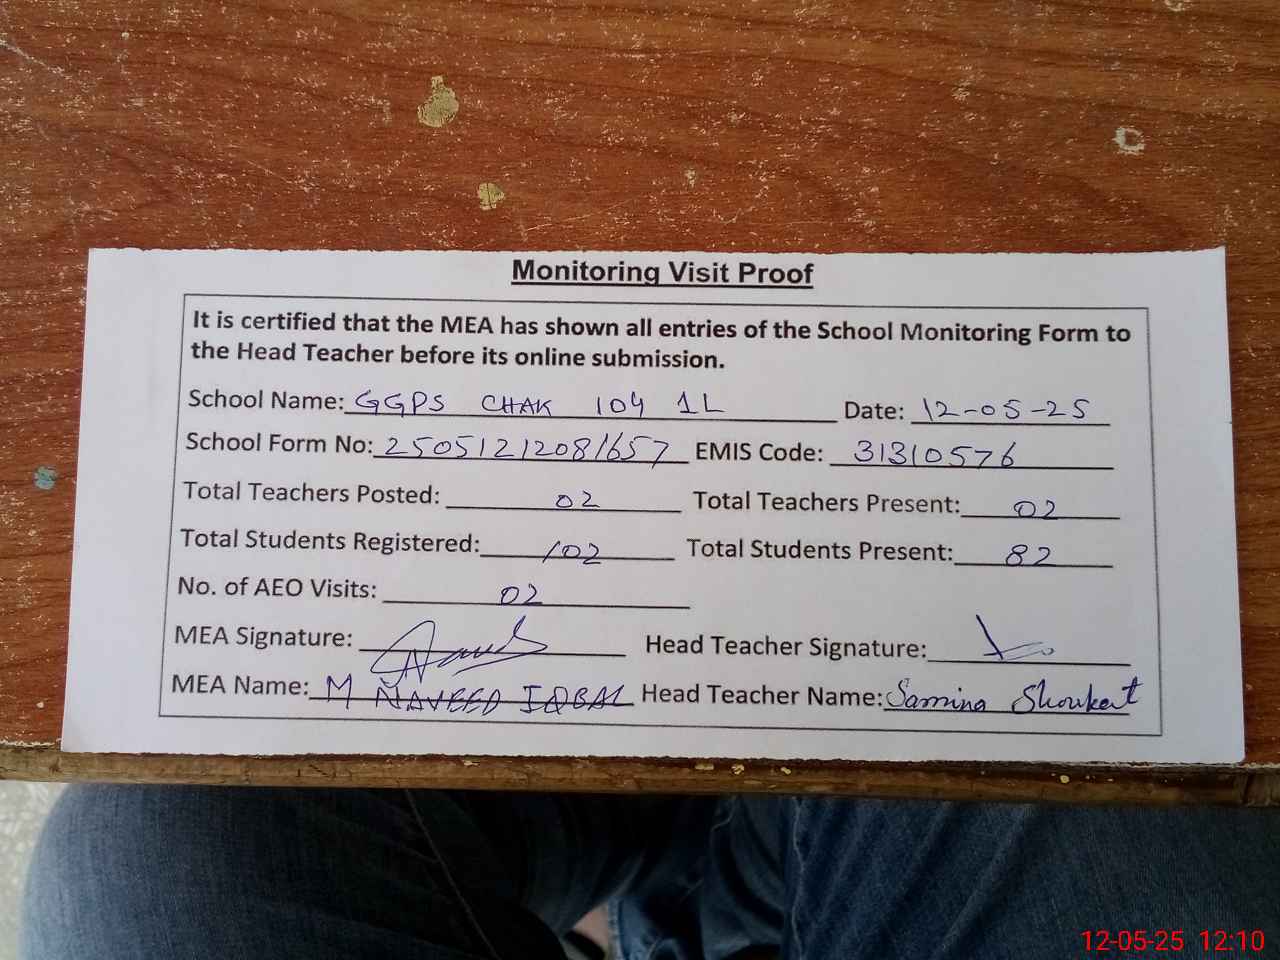 Monitoring Visit Proof
It is certified that the MEA has shown all entries of the School Monitoring Form to
the Head Teacher before its online submission.
School Name: GGPS CHAK 104 1L Date: 12-05-25
School Form No: 25051212081657 EMIS Code: 31310576
Total Teachers Posted: 02 Total Teachers Present: 02
Total Students Registered: 102 Total Students Present: 82
No. of AEO Visits: 02
MEA Signature: Head Teacher Signature:
MEA Name: M NAVEED IQBAL Head Teacher Name: Samina Shoukat
12-05-25 12:10